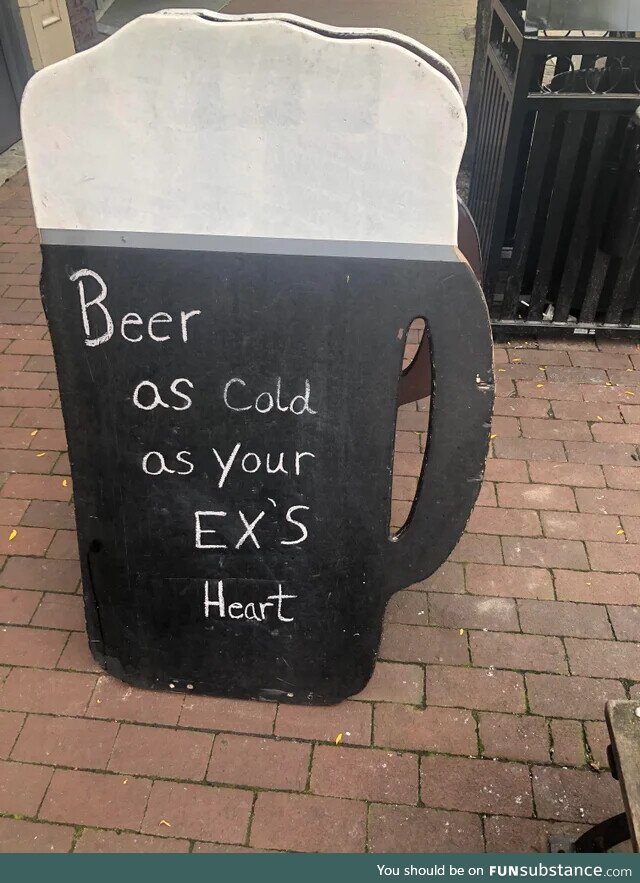 Beer
as cold
as your
EX'S
Heart
You should be on FUNsubstance.com